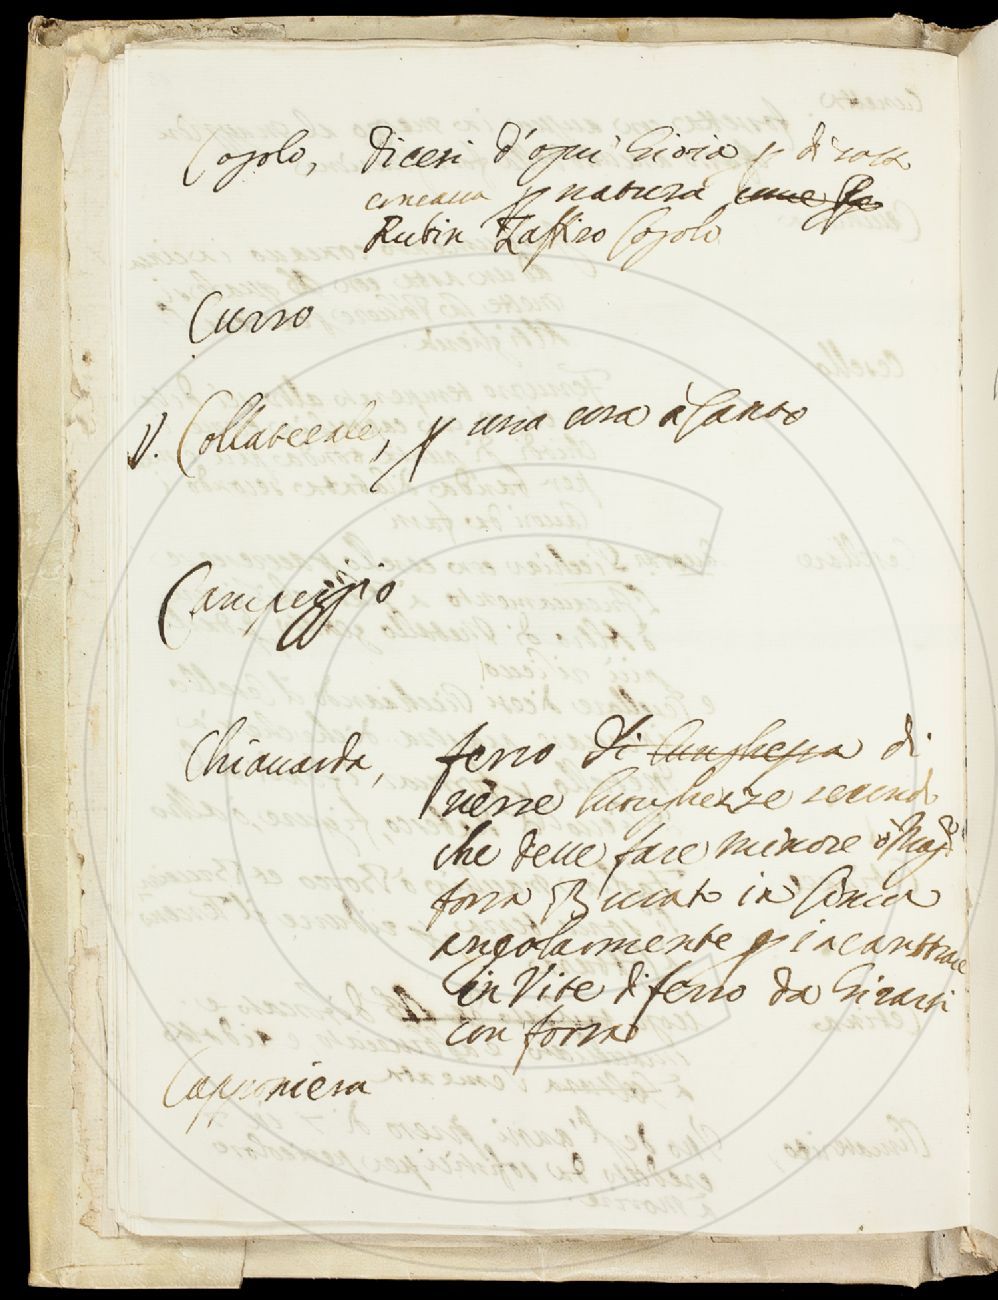 Cogolo, dicesi d'ogni Gioia p di sotto
concaua p natura come Ru
Rubin Zaffiro Cogolo
Curro
V. Collaterale, p una cosa à canto
Campeggio
Chiauarda, ferro di lunghezza di
uerse lunghezze secondo
che deue fare minore ò Magr
forza Bucato in Cima
angolarmente p incastrare
in Vite di ferro da Girarsi
con forza
Capponiera